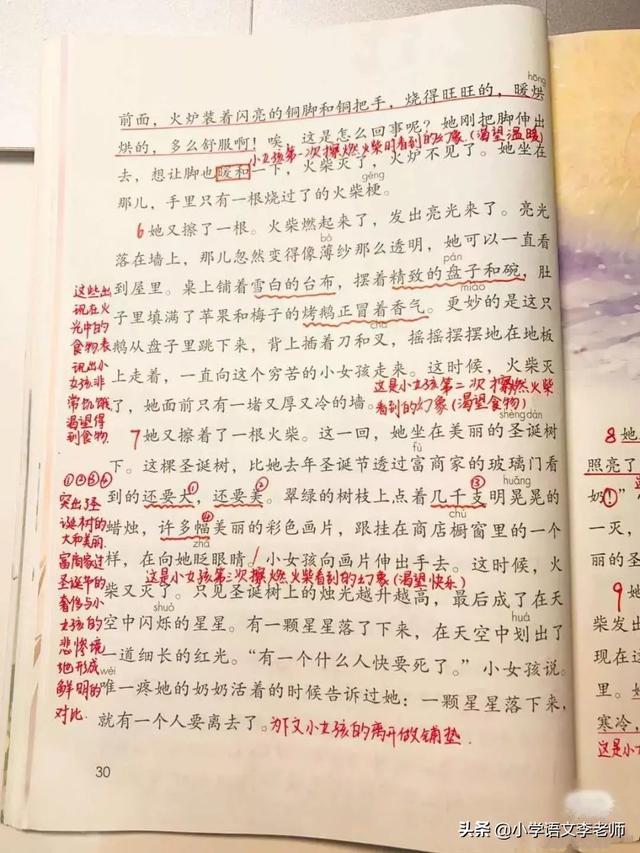 hōng
前面，火炉装着闪亮的铜脚和铜把手，烧得旺旺的，暖烘
烘的，多么舒服啊！唉，这是怎么回事呢？她刚把脚伸出
小女孩第一次擦燃火柴时看到的幻象(渴望温暖)
去，想让脚也暖和一下，火柴灭了，火炉不见了。她坐在
gěng
那儿，手里只有一根烧过了的火柴梗。
6她又擦了一根。火柴燃起来了，发出亮光来了。亮光
bó
落在墙上，那儿忽然变得像薄纱那么透明，她可以一直看
pán
到屋里。桌上铺着雪白的台布，摆着精致的盘子和碗，肚
miào
子里填满了苹果和梅子的烤鹅正冒着香气。更妙的是这只
chā
鹅从盘子里跳下来，背上插着刀和叉，摇摇摆摆地在地板
上走着，一直向这个穷苦的小女孩走来。这时候，火柴灭
这是小女孩第二次擦燃火柴
了，她面前只有一堵又厚又冷的墙。
看到的幻象(渴望食物)
这些出
现在火
光中的
食物表
现出小
女孩非
常饥饿
渴望得
到食物.
shèng dàn
7她又擦着了一根火柴。这一回，她坐在美丽的圣诞树
fù
下。这棵圣诞树，比她去年圣诞节透过富商家的玻璃门看
huǎng
①②③④
到的还要大①，还要美②。翠绿的树枝上点着几千支③明晃晃的
chú
蜡烛，许多幅④美丽的彩色画片，跟挂在商店橱窗里的一个
zhǎ
样，在向她眨眼睛。小女孩向画片伸出手去。这时候，火
这是小女孩第三次擦燃火柴看到的幻象(渴望快乐)
柴又灭了。只见圣诞树上的烛光越升越高，最后成了在天
shuò
空中闪烁的星星。有一颗星星落了下来，在天空中划出了
huá
一道细长的红光。“有一个什么人快要死了。”小女孩说。
wéi
唯一疼她的奶奶活着的时候告诉过她：一颗星星落下来，
就有一个人要离去了。为下文小女孩的离开做铺垫.
突出了圣
诞树的
大和美丽.
富商家过
圣诞节的
奢侈与小
女孩的
悲惨境
地形成
鲜明的
对比.
30
8她
照亮了
奶！”
一灭，
丽的圣
9她
柴发出
现在这
里。
寒冷，
这是小
头条 @小学语文李老师